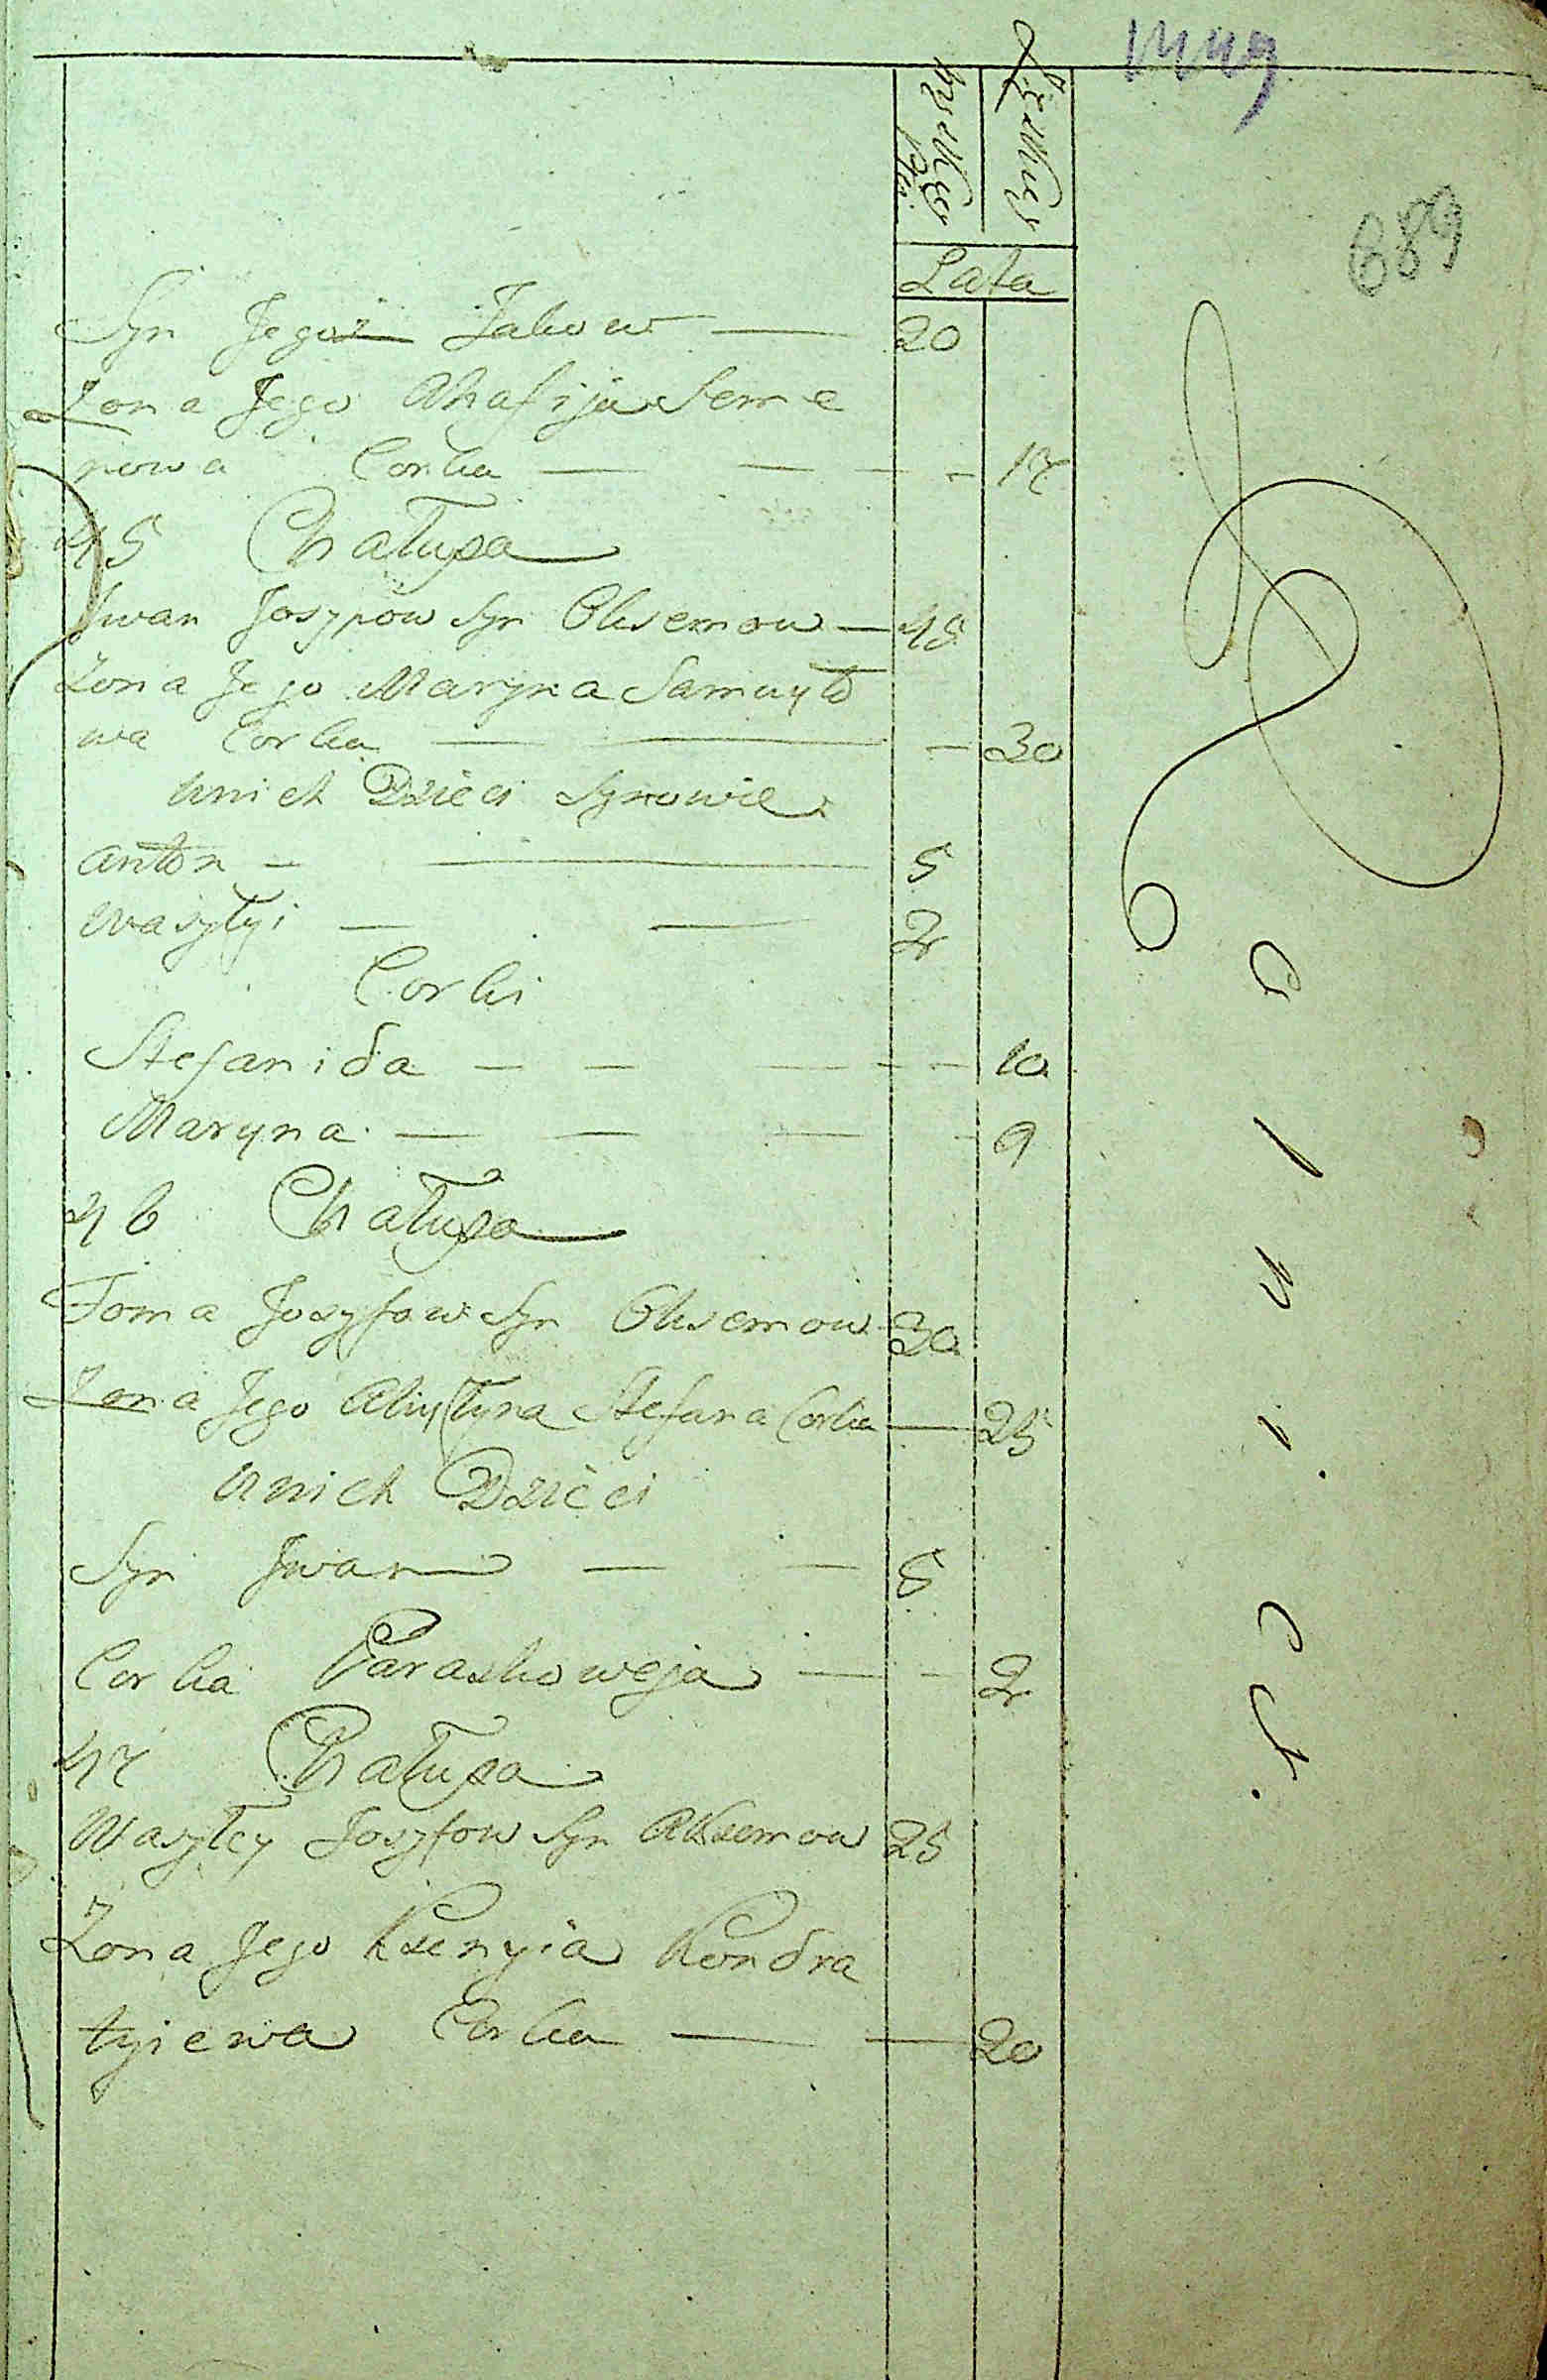 889
Męzkiey
Płci
Żeńskiey
Lata
Syn Jego Jakow — 20
Żona Jego Ahafija Seme
nowa Corka — — — 17
45 Chałupa
Jwan Josypow Syn Oksemow — 45
Żona Jego Maryna Samuyło
wa Corka — — — 30
unich Dzieci Synowie
Anton — — 5
Wasyłyi — — 2
Corki
Stefanida — — — 10
Maryna — — — 9
46 Chałupa
Foma Josyfow Syn Oksemow 30
Żona Jego Stefana Corka — 25
unich Dzieci
Syn Jwan — — 5
Corka Paraskoweja — — 2
47 Chałupa
Wasyłey Josyfow Syn Aksemow 25
Żona Jego Ksenyia Kondra
tyiewa Corka — — 20